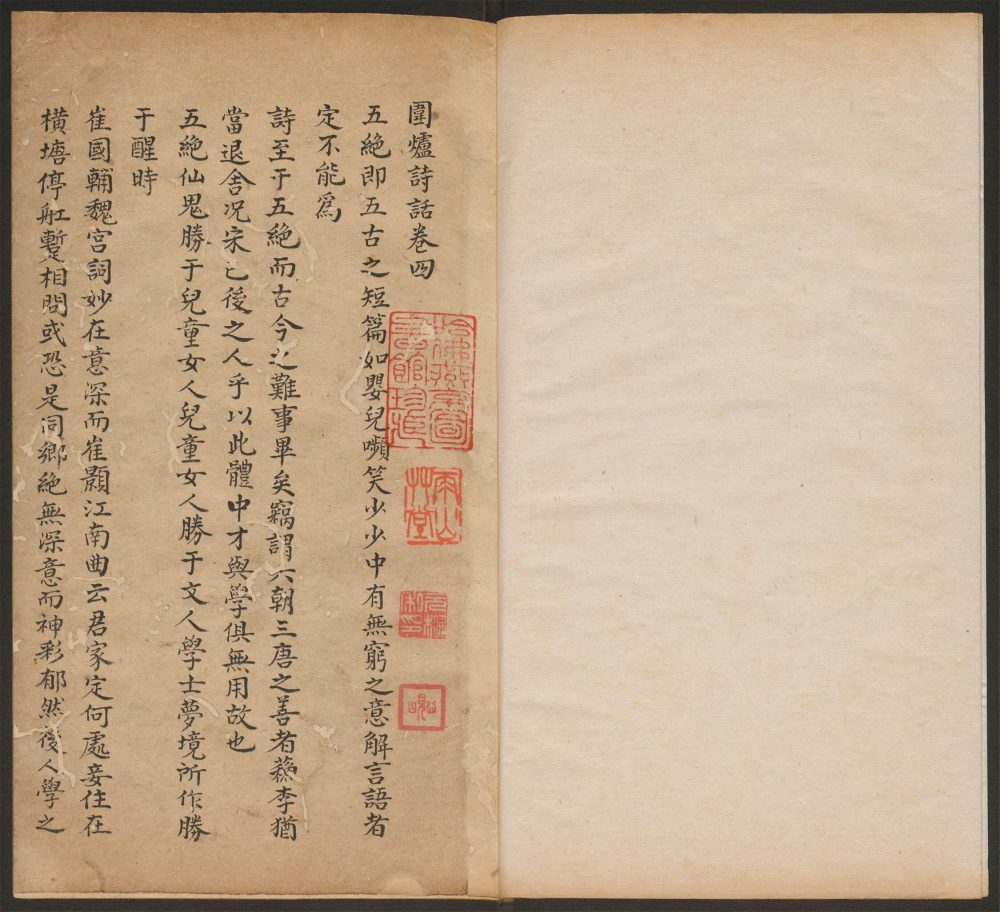 圍爐詩話卷四
五絕即五古之短篇如嬰兒嚬笑少少中有無窮之意解言語者
定不能爲
詩至于五絕而古今之難事畢矣竊謂六朝三唐之善者蘓李猶
當退舍况宋已後之人乎以此體中才與學俱無用故也
五絕仙鬼勝于兒童女人兒童女人勝于文人學士夢境所作勝
于醒時
崔國輔魏宫詞妙在意深而崔顥江南曲云君家定何處妾住在
橫塘停舡蹔相問或恐是同鄉絕無深意而神彩郁然後人學之